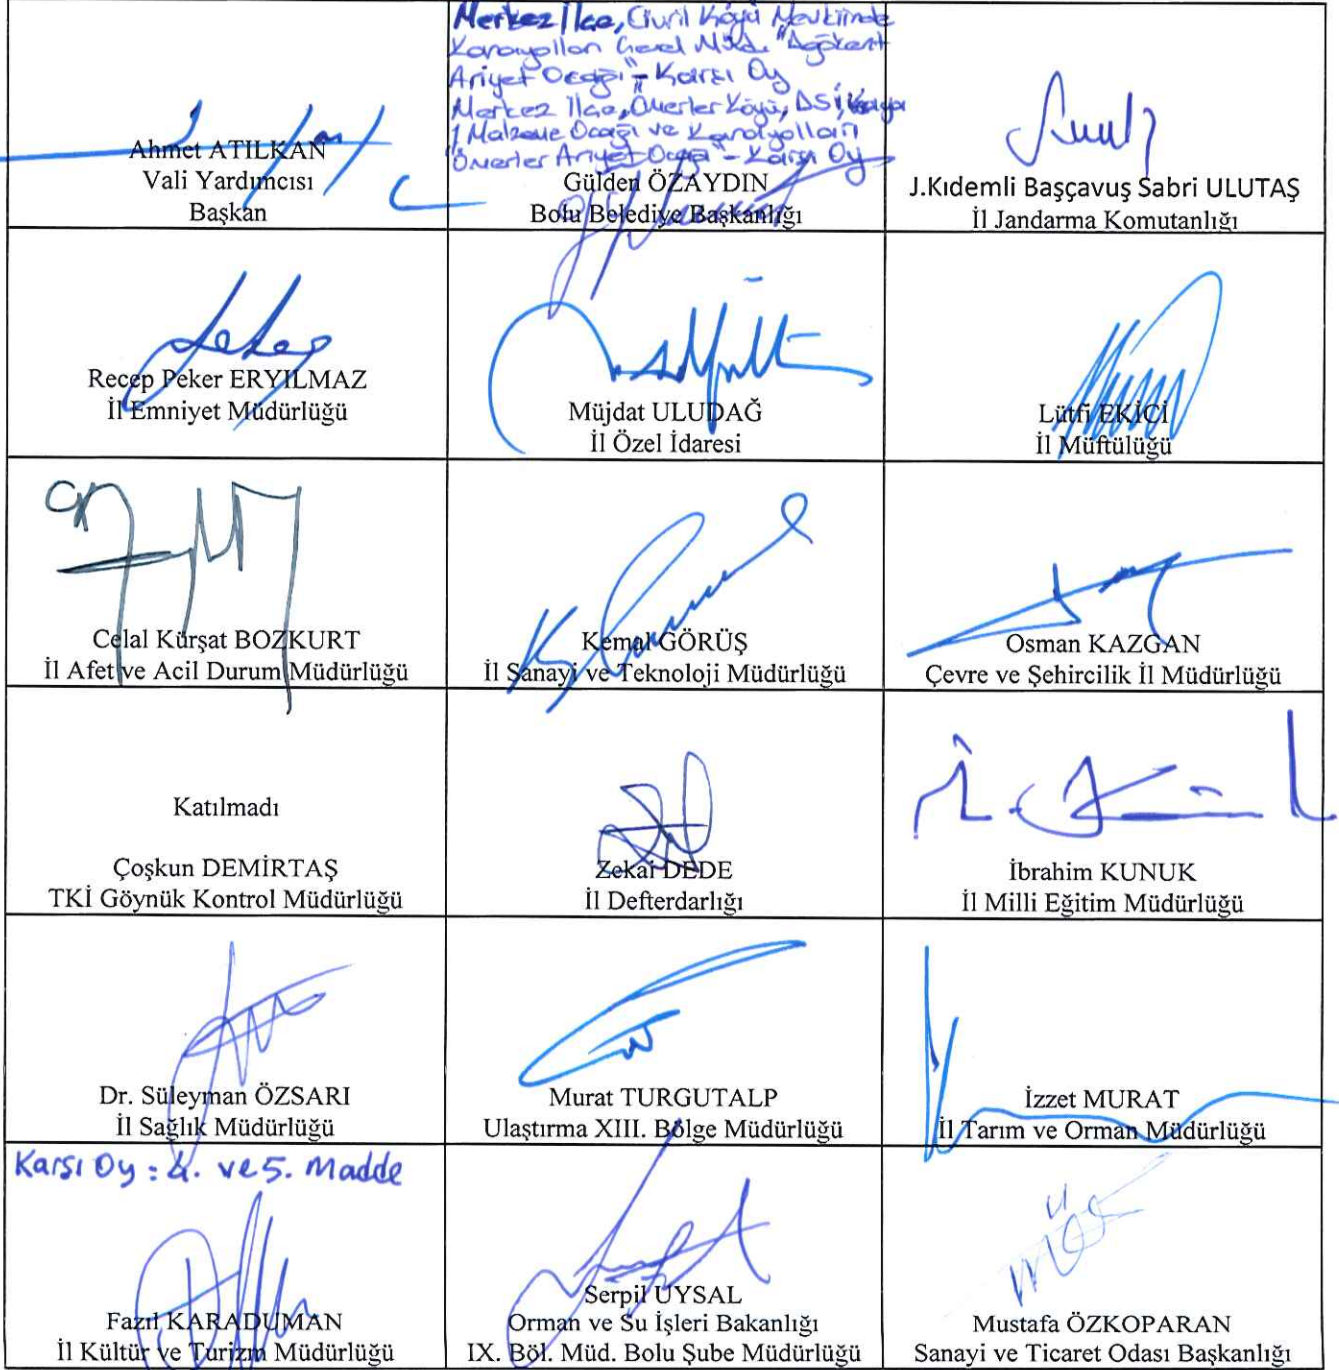 Merkez İlçe, Civril Köyü Mevkiinde
Karayolları Genel Müd. "Dağkent
Ariyet Ocağı" - Karşı Oy
Merkez İlçe, Ömerler Köyü, DSİ,
1 Malzeme Ocağı ve Karayolları
"Ömerler Ariyet Ocağı" - Karşı Oy
Ahmet ATILKAN
Vali Yardımcısı
Başkan
Gülden ÖZAYDIN
Bolu Belediye Başkanlığı
J.Kıdemli Başçavuş Sabri ULUTAŞ
İl Jandarma Komutanlığı
Recep Peker ERYILMAZ
İl Emniyet Müdürlüğü
Müjdat ULUDAĞ
İl Özel İdaresi
Lütfi EKİCİ
İl Müftülüğü
Celal Kürşat BOZKURT
İl Afet ve Acil Durum Müdürlüğü
Kemal GÖRÜŞ
İl Sanayi ve Teknoloji Müdürlüğü
Osman KAZGAN
Çevre ve Şehircilik İl Müdürlüğü
Katılmadı
Çoşkun DEMİRTAŞ
TKİ Göynük Kontrol Müdürlüğü
Zekai DEDE
İl Defterdarlığı
İbrahim KUNUK
İl Milli Eğitim Müdürlüğü
Dr. Süleyman ÖZSARI
İl Sağlık Müdürlüğü
Murat TURGUTALP
Ulaştırma XIII. Bölge Müdürlüğü
İzzet MURAT
İl Tarım ve Orman Müdürlüğü
Karşı Oy : 4. ve 5. Madde
Fazıl KARADUMAN
İl Kültür ve Turizm Müdürlüğü
Serpil UYSAL
Orman ve Su İşleri Bakanlığı
IX. Böl. Müd. Bolu Şube Müdürlüğü
Mustafa ÖZKOPARAN
Sanayi ve Ticaret Odası Başkanlığı